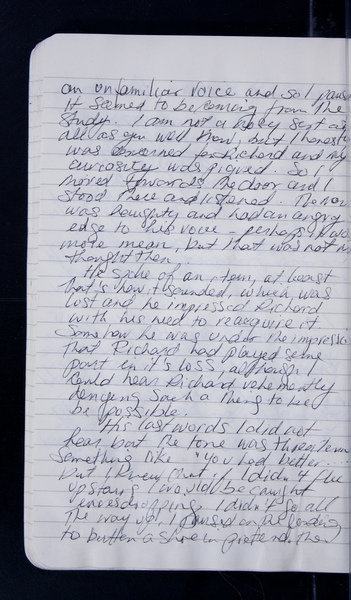 an unfamiliar voice and so I paus
It seemed to be coming from the
study. I am not a nosy sort at
all as you well know, but I honestly
was concerned for Richard and my
curiosity was piqued. So I
moved towards the door and I
stood there and listened. The man
was haughty and had an angry
edge to his voice - perhaps it was
more mean, but that was not my
thought then.
He spoke of an item, at least
that's how it sounded, which was
lost and he impressed Richard
with his need to reacquire it
Somehow he was under the impressi
that Richard had played some
part in it's loss, although I
could hear Richard vehemently
denying such a thing to be
be possible.
His last words I did not
hear but the tone was threaten
something like "you had better
but I knew that if I didn't flee
upstairs I would be caught
eavesdropping. I didn't go all
the way up, I paused on the landing
to button a shoe in pretend. Then